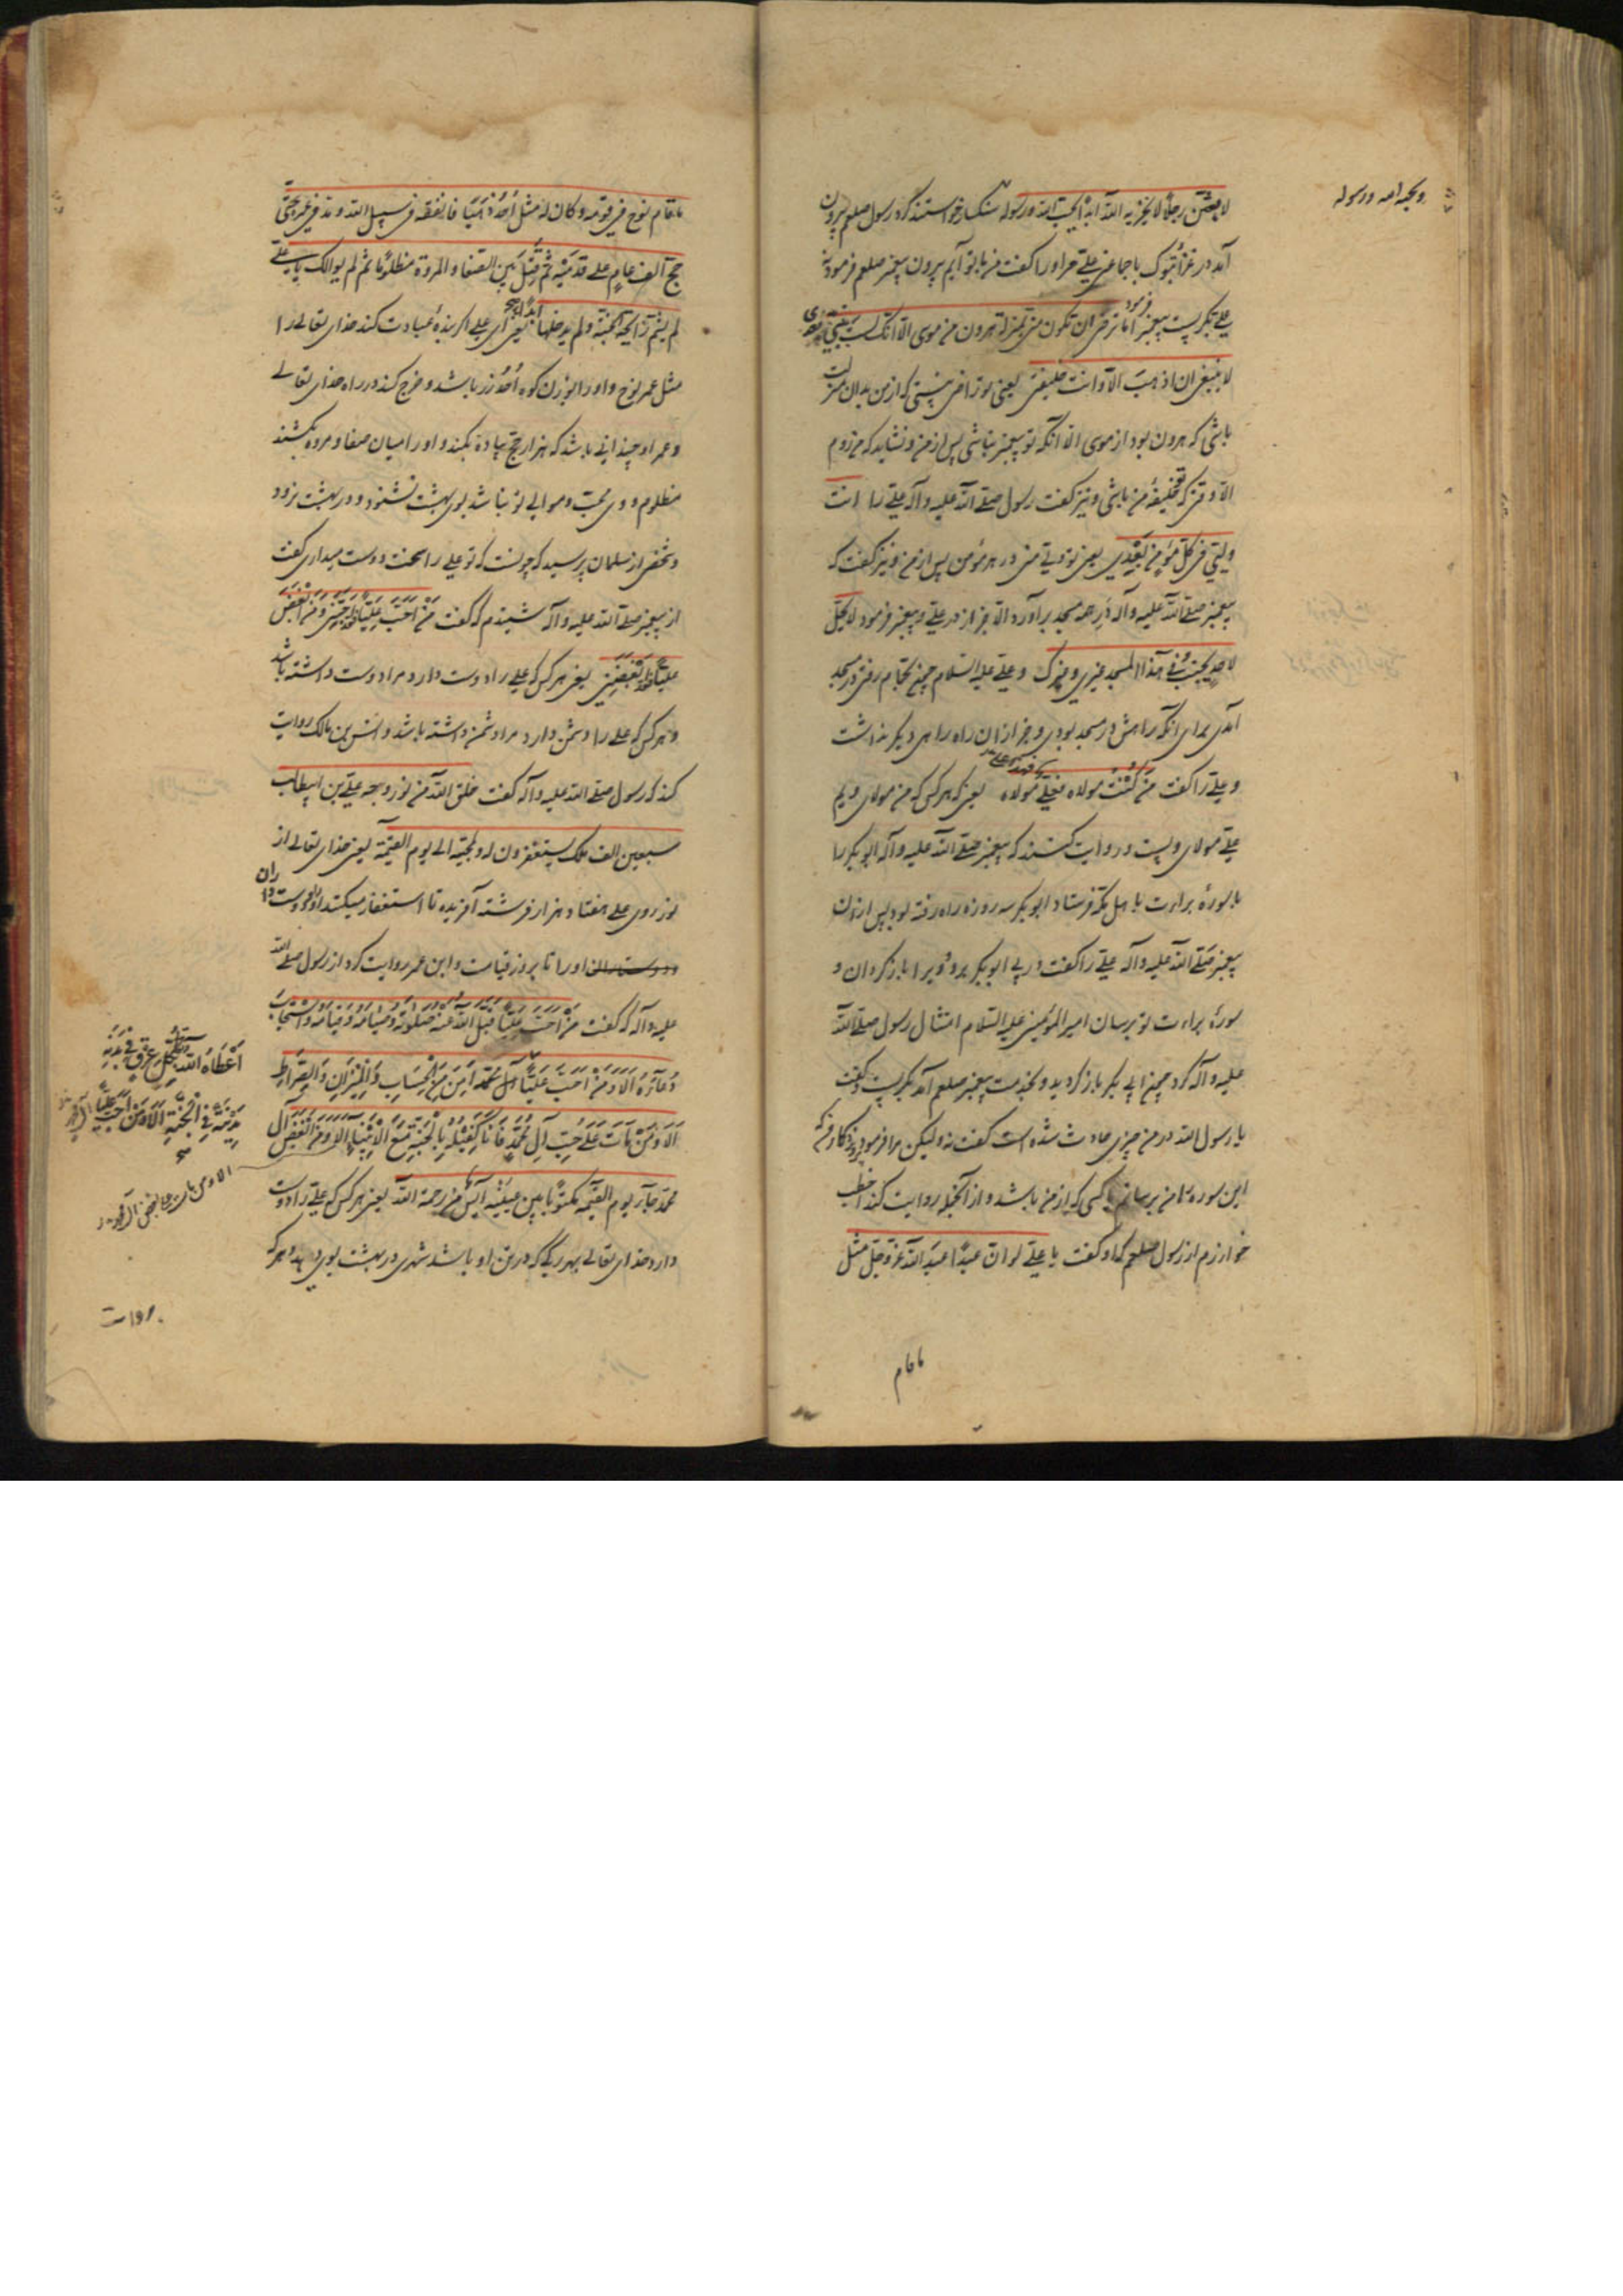 لابعثن رجلا لا یخزیه الله ابدا یحب الله ورسوله سنکسار خواستند کرد رسول صلعم بیرون
ویحبه الله ورسوله
آمد در غزاء تبوک با جماعتی علی مر اورا گفت من با تو آیم بیرون پیغمبر صلعم فرمود نه
علی بگریست پیغمبر فرمود اما ترضی ان تکون منی بمنزلة هرون من موسی الا انک لست بنبی
لا ینبغی ان اذهب الا و انت خلیفتی یعنی تو راضی نیستی که از من بدان منزلت
باشی که هرون بود از موسی الا آنکه تو پیغمبر نباشی پس از من و نشاید که من روم
الا وقتی که تو خلیفه من باشی و نیز گفت رسول صلی الله علیه وآله علی را انت
ولیی فی کل مؤمن بعدی یعنی تو ولی منی در هر مؤمن پس از من و نیز گفت که
پیغمبر صلی الله علیه وآله در همه مسجد برآورد الا جز از در علی و پیغمبر فرمود لا یحل
لاحد یجنب فی هذا المسجد غیری و غیرک و علی علیه السلام جنب رفتی در مسجد
آمدی برای آنکه راهش در مسجد بودی و جز از آن راه راهی دیگر نداشت
و علی را گفت من کنت مولاه فعلی مولاه یعنی که هر کس که من مولای ویم
علی مولای ویست و روایت کنند که پیغمبر صلی الله علیه وآله ابوبکر را
با سورهٔ براءت باهل مکه فرستاد ابوبکر سه روزه راه رفته بود پس از آن
پیغمبر صلی الله علیه وآله علی را گفت در پی ابوبکر برو و ویرا باز گردان و
سورهٔ براءت تو برسان امیر المؤمنین علیه السلام امتثال رسول صلی الله
علیه وآله کرد چون ابی بکر باز گردید و بخدمت پیغمبر صلعم آمد بگریست و گفت
یا رسول الله در من چیزی حادث شده است گفت نه ولیکن مرا فرمود
این سوره تا من برسانم یا کسی که از من باشد و از آنجمله روایت کند اخطب
خوارزم از رسول صلعم که او گفت یا علی لو ان عبدا عبد الله عز وجل مثل
ما قام
ما قام نوح فی قومه و کان له مثل احد ذهبا فانفقه فی سبیل الله و مد فی عمره حتی
حج الف عام علی قدمیه ثم قتل بین الصفا والمروة مظلوما ثم لم یوالک یا علی
لم یشم رایحة الجنة ولم یدخلها یعنی ای علی اگر بندهٔ عبادت کند خدای تعالی را
مثل عمر نوح و او را بوزن کوه احد زر باشد و خرج کند در راه خدای تعالی
و عمر او چندانی باشد که هزار حج پیاده بکند و او را میان صفا و مروه بکشند
مظلوم و وی محب و موالی تو نباشد بوی بهشت نشنود و در بهشت نرود
و شخصی از سلمان پرسید که چونست که تو علی را سخت دوست میداری گفت
از پیغمبر صلی الله علیه وآله شنیدم که گفت من احب علیا فقد احبنی و من ابغض
علیا فقد ابغضنی یعنی هر کس که علی را دوست دارد مرا دوست داشته باشد
و هر کس که علی را دشمن دارد مرا دشمن داشته باشد و انس بن مالک روایت
کند که رسول صلی الله علیه وآله گفت خلق الله من نور وجه علی بن ابیطالب
سبعین الف ملک یستغفرون له ولمحبیه الی یوم القیمة یعنی خدای تعالی از
نور روی علی هفتاد هزار فرشته آفریده تا استغفار میکنند او را و دوستداران
ودوستداران او را تا بروز قیامت و ابن عمر روایت کرد از رسول صلی الله
علیه وآله که گفت من احب علیا قبل الله منه صلوته وصیامه وقیامه واستجاب
دعاءه الا ومن احب علیا
آل محمد امن من الحساب والمیزان والصراط
الا ومن مات علی حب آل محمد فانا کفیله بالجنة مع الانبیاء الا ومن ابغض آل
محمد جاء یوم القیمة مکتوبا بین عینیه آیس من رحمة الله یعنی هر کس که علی را دوست
دارد خدای تعالی بهر رگی که در تن او باشد شهری در بهشت بوی دهد و هر که
اعطاه الله بکل عرق فی بدنه
مدینة فی الجنة الا ومن احب
الا ومن مات علی بغض آل محمد